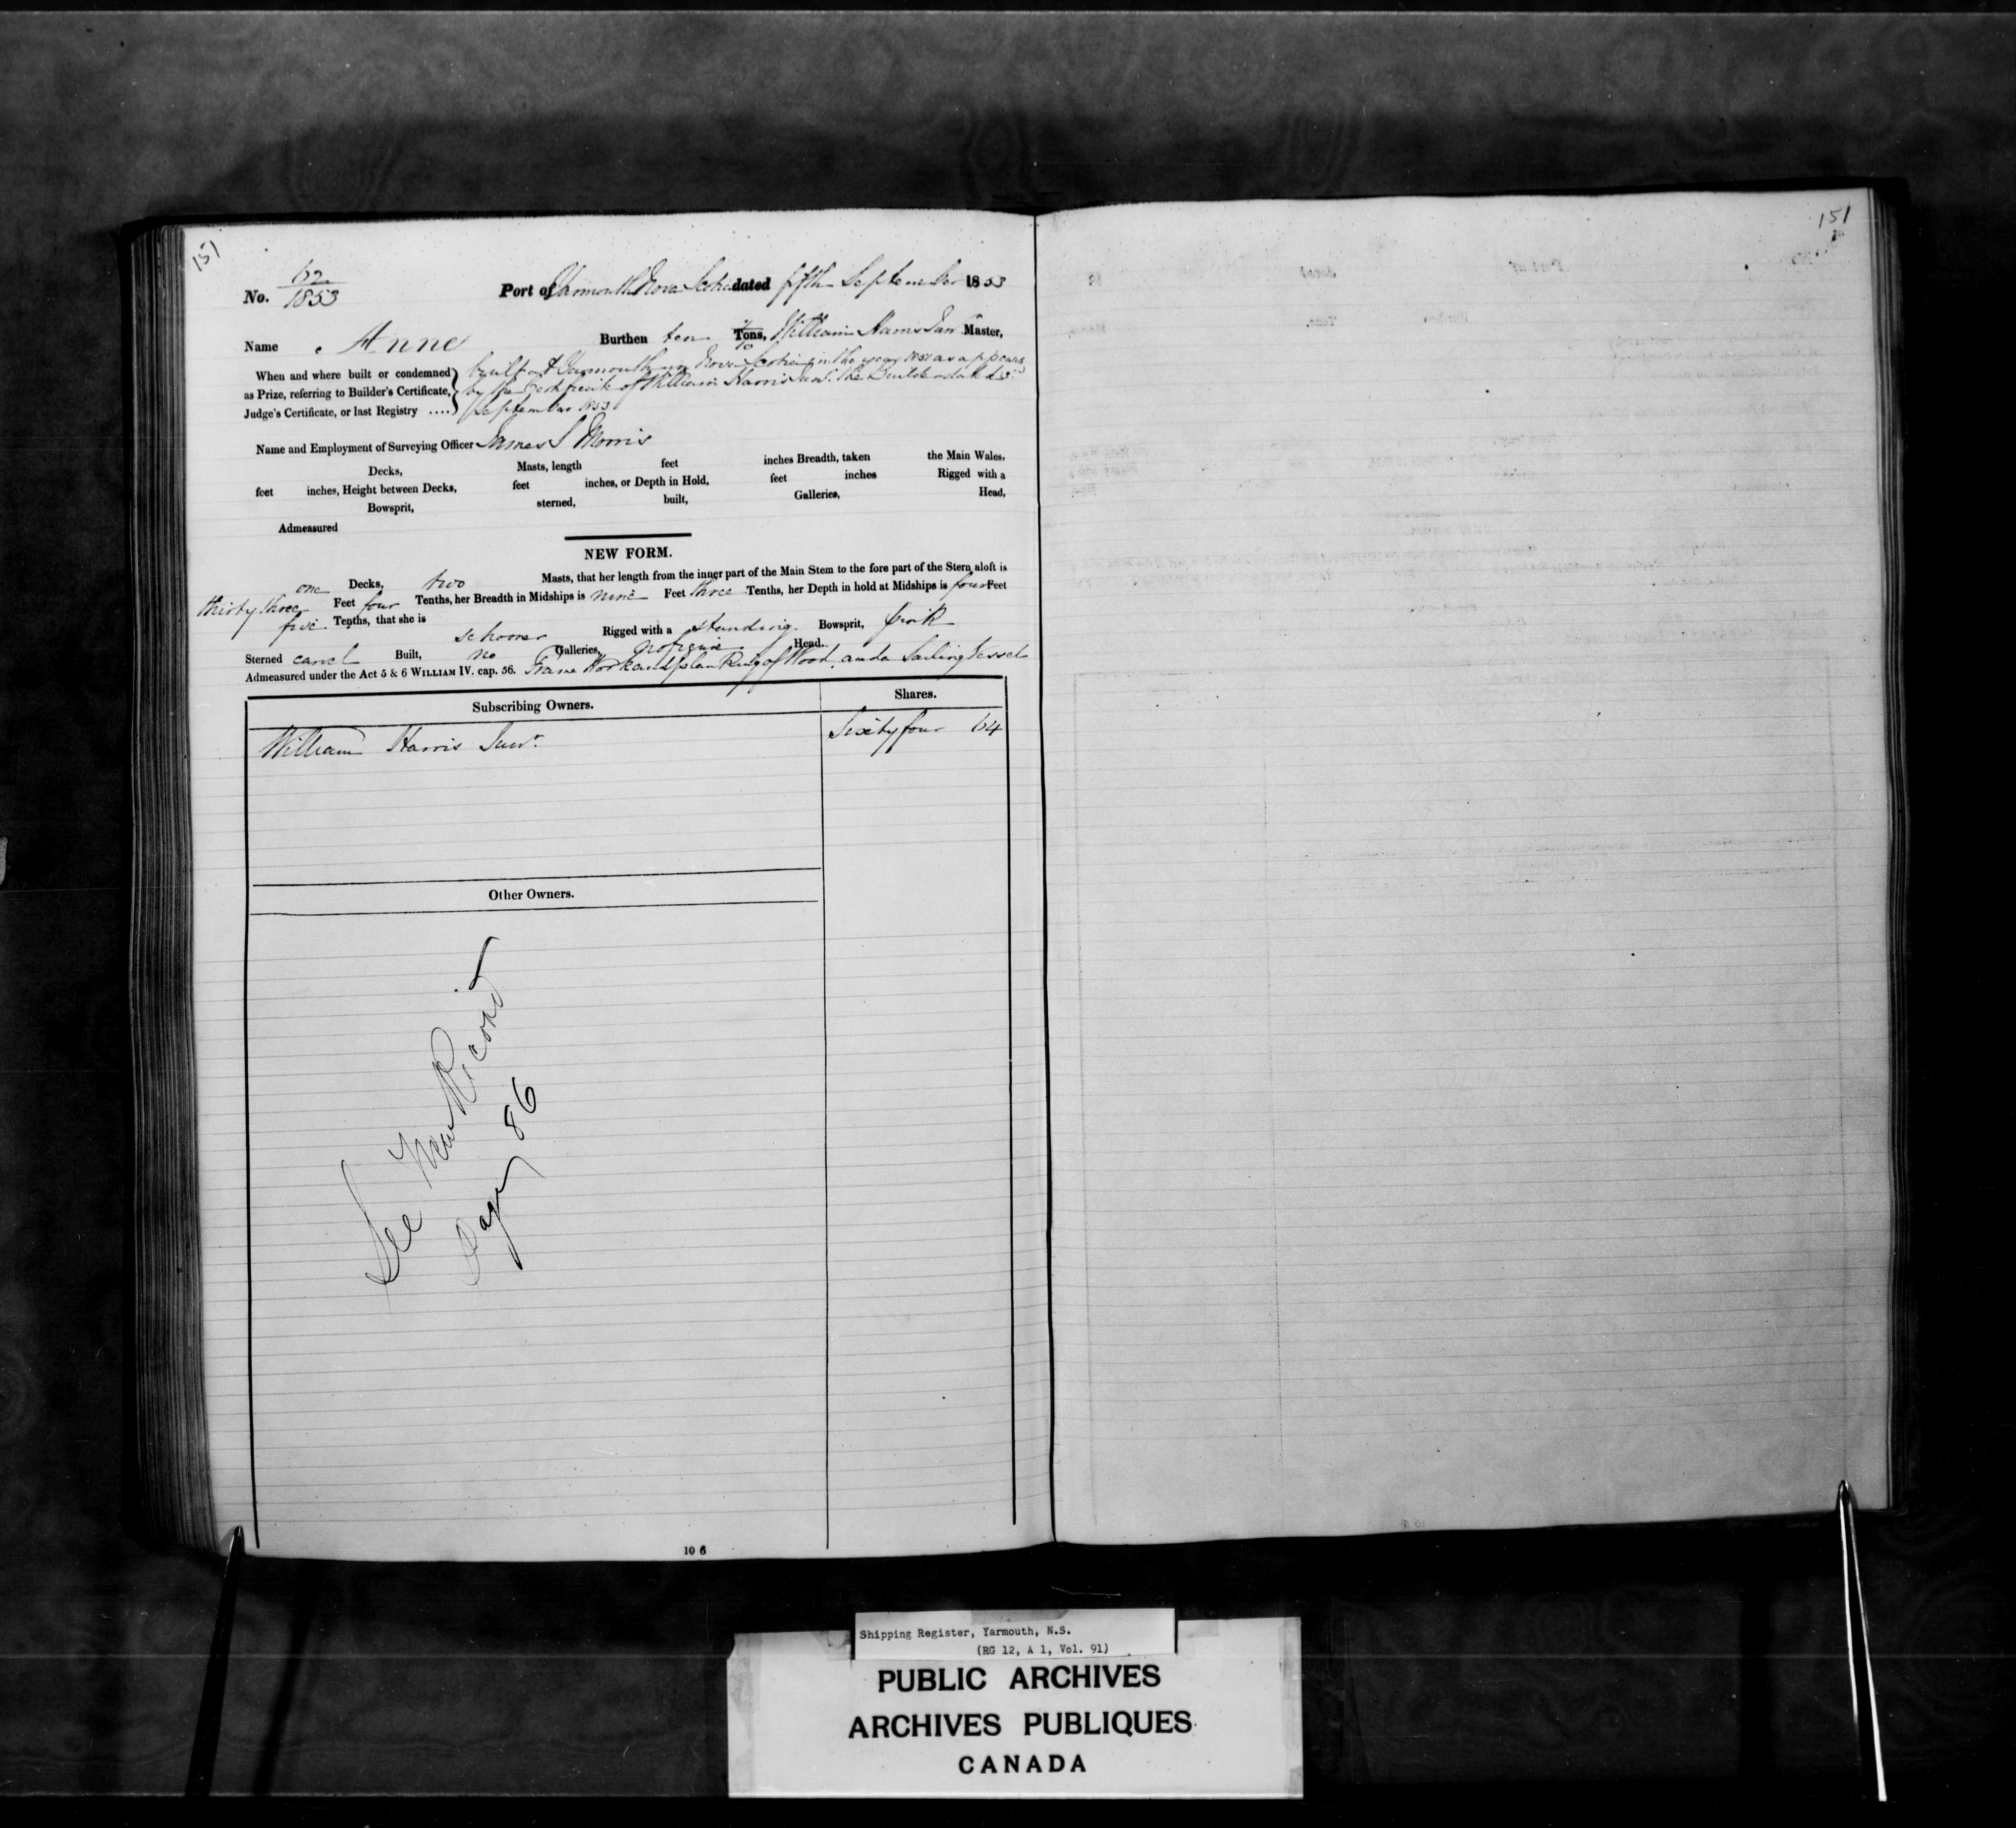 151
151
No. 62/1853 Port of Yarmouth Nova Scotia dated fifth September 1853
Name Anne Burthen ten Tons, William Harris Junr Master,
When and where built or condemned as Prize, referring to Builder's Certificate, Judge's Certificate, or last Registry ....
built at Yarmouth in Nova Scotia in the year 1851 as appears
by the Certificate of William Harris Junr. the Builder dated 3rd
September 1853
Name and Employment of Surveying Officer James S Morris
Decks, Masts, length feet inches Breadth, taken the Main Wales,
feet inches, Height between Decks, feet inches, or Depth in Hold, feet inches Rigged with a
Bowsprit, sterned, built, Galleries, Head,
Admeasured
NEW FORM.
one Decks, two Masts, that her length from the inner part of the Main Stem to the fore part of the Stern aloft is
thirty three Feet four Tenths, her Breadth in Midships is nine Feet three Tenths, her Depth in hold at Midships is four Feet
five Tenths, that she is schooner Rigged with a standing Bowsprit, pink
Sterned carvel Built, no Galleries, no figure Head.
Admeasured under the Act 5 & 6 WILLIAM IV. cap. 56. Frame Work and planking of Wood, and a Sailing Vessel
Subscribing Owners. Shares.
William Harris Junr. Sixty four 64
Other Owners.
See New Record
Page 86
10 6
Shipping Register, Yarmouth, N.S.
(RG 12, A 1, Vol. 91)
PUBLIC ARCHIVES
ARCHIVES PUBLIQUES
CANADA